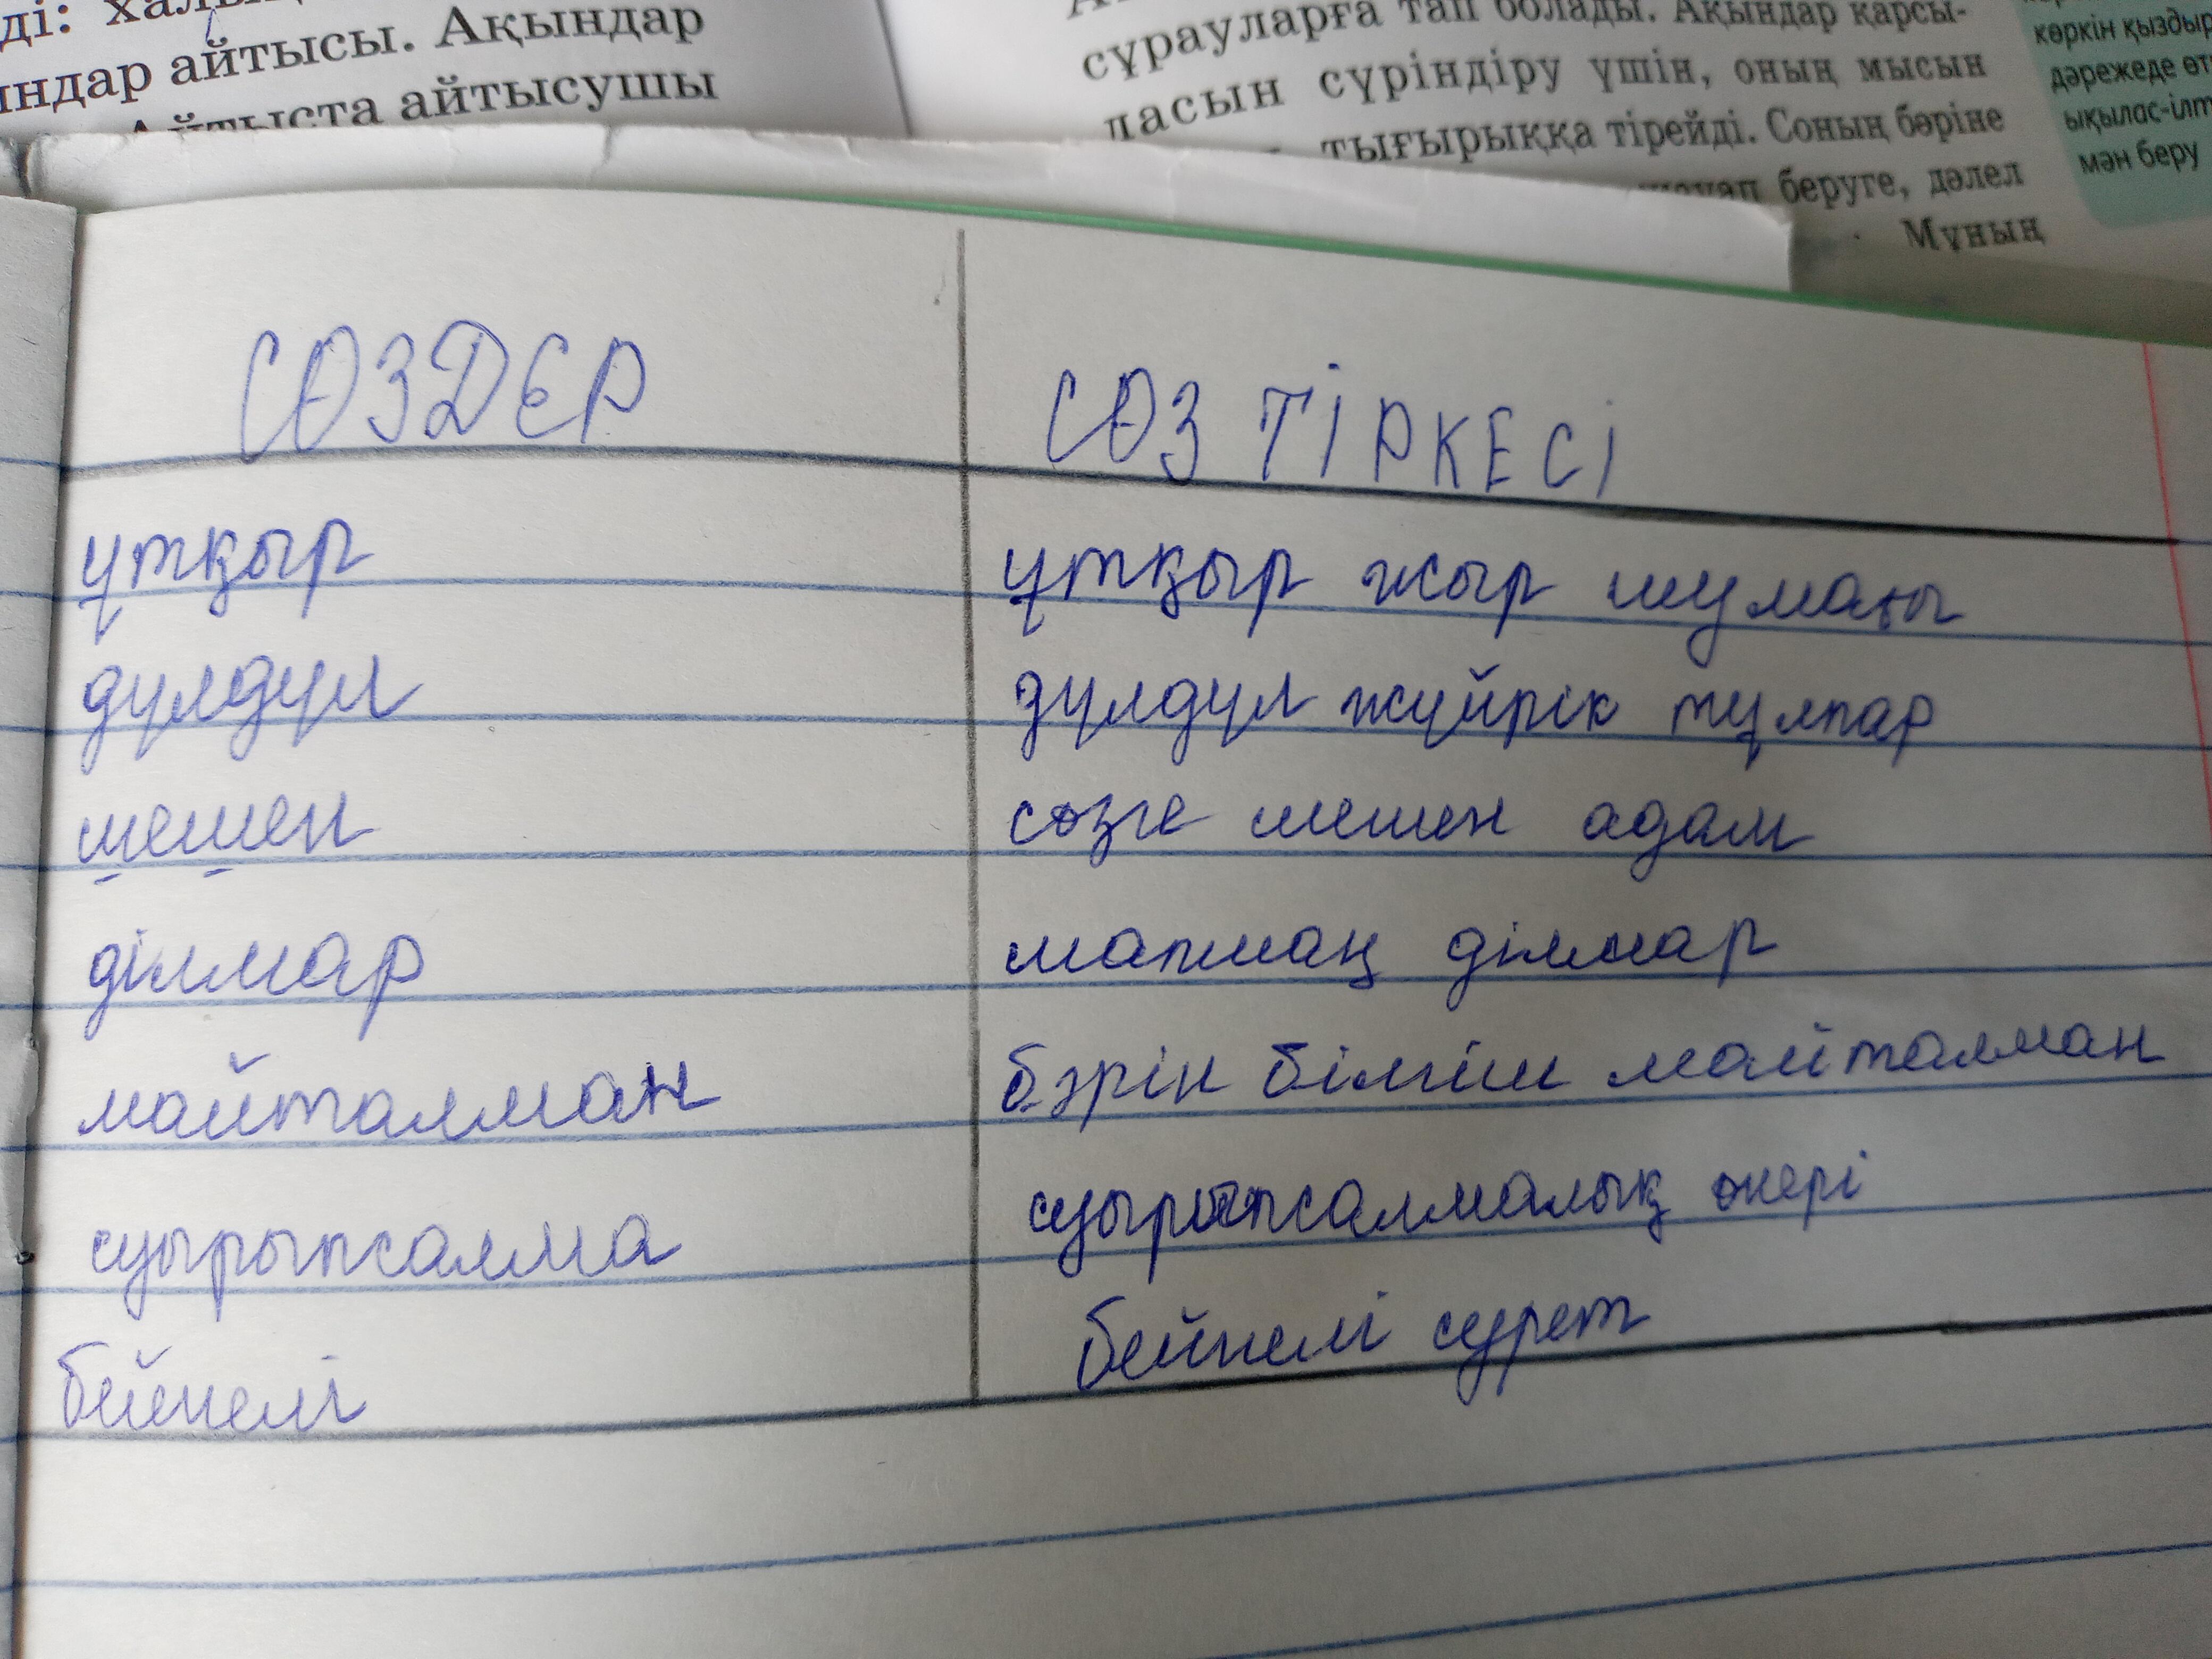 айтысы. Ақындар
ындар айтысы
Айтыста айтысушы
сұрауларға тап болады. Ақындар қарсы-
ласын сүріндіру үшін, оның мысын
тығырыққа тірейді. Соның бәріне
беруге, дәлел
Мұның
көркін қыздыр
дәрежеде
ықылас-ілт
мән беру
СӨЗДЕР | СӨЗ ТІРКЕСІ
ұтқыр | ұтқыр жыр шумағы
дүлдүл | дүлдүл жүйрік тұлпар
шешен | сөзге шешен адам
ділмар | мапмаң ділмар
майталман | бәрін білгіш майталман
суырыпсалма | суырыпсалмалық өнері
бейнелі | бейнелі сурет